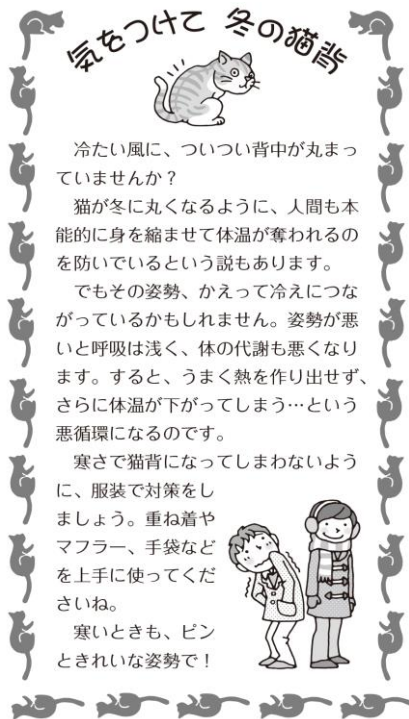 気をつけて 冬の猫背
冷たい風に、ついつい背中が丸まっ
ていませんか？
猫が冬に丸くなるように、人間も本
能的に身を縮ませて体温が奪われるの
を防いでいるという説もあります。
でもその姿勢、かえって冷えにつな
がっているかもしれません。姿勢が悪
いと呼吸は浅く、体の代謝も悪くなり
ます。すると、うまく熱を作り出せず、
さらに体温が下がってしまう…という
悪循環になるのです。
寒さで猫背になってしまわないよう
に、服装で対策をし
ましょう。重ね着や
マフラー、手袋など
を上手に使ってくだ
さいね。
寒いときも、ピン
ときれいな姿勢で！